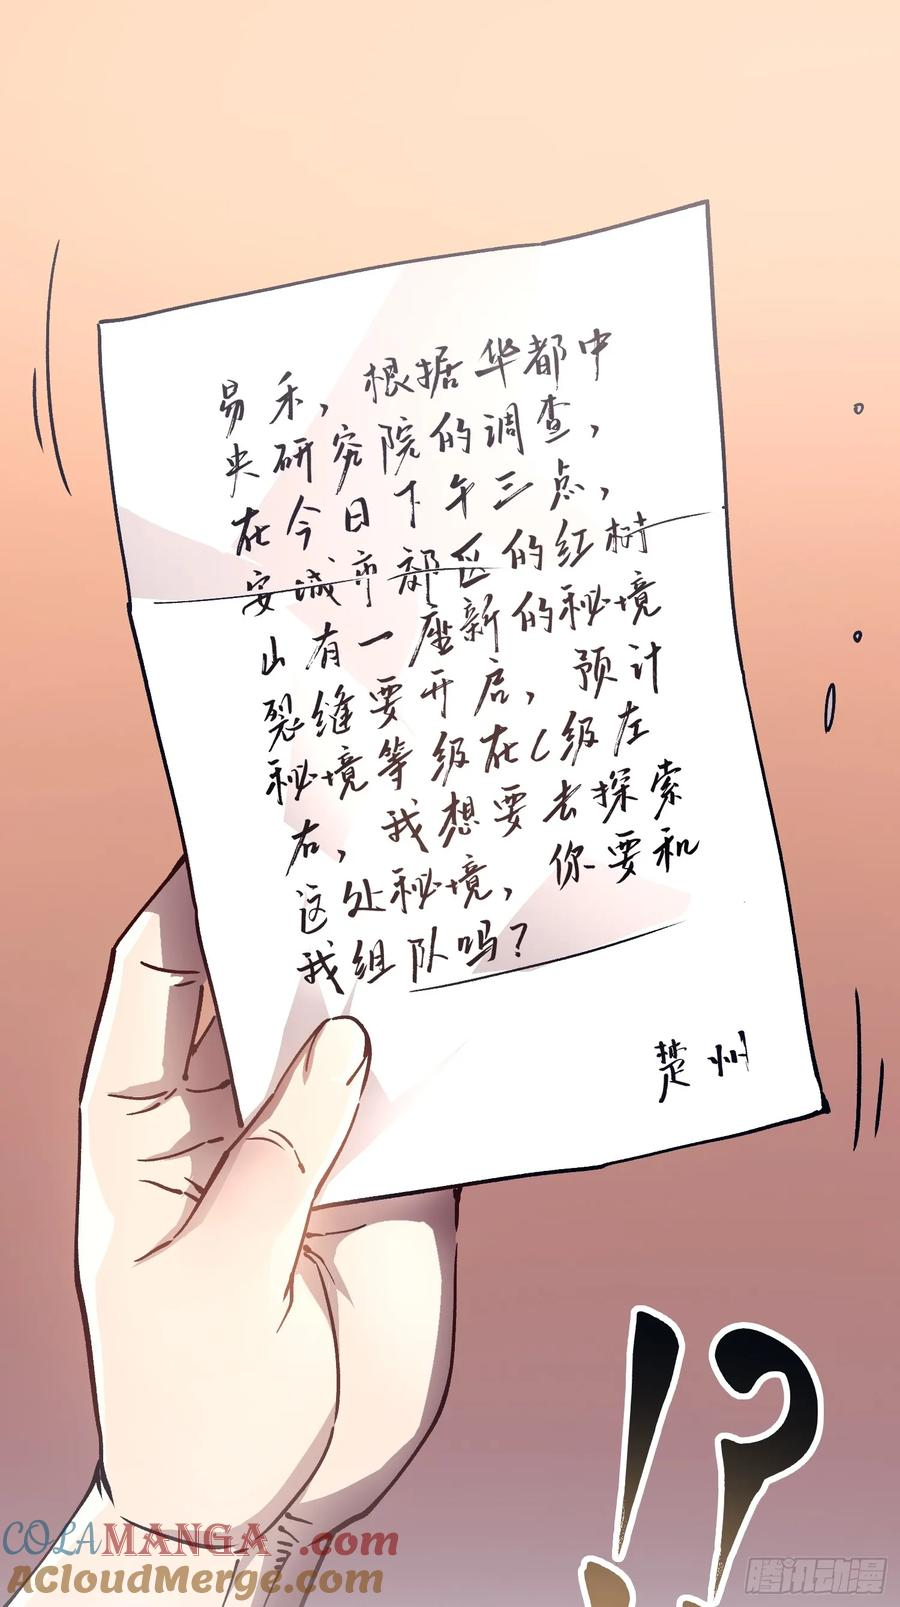 易禾，根据华都中
央研究院的调查，
在今日下午三点，
安城市郊区的红树
山有一座新的秘境
裂缝要开启，预计
秘境等级在C级左
右，我想要去探索
这处秘境，你要和
我组队吗？
楚州
!?
COLAMANGA.com
AcloudMerge.com
腾讯动漫